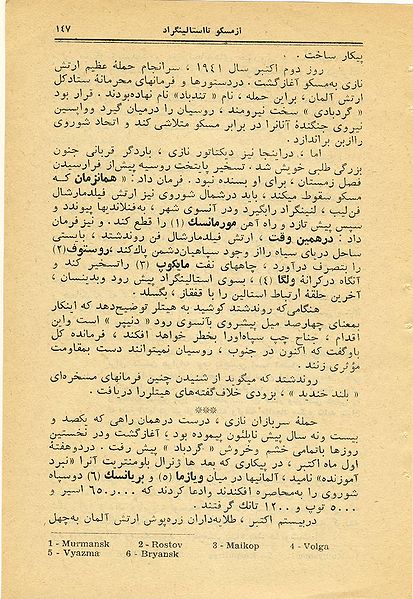 ازمسکو تااستالینگراد ۱۴۷
پیکار ساخت . .
روز دوم اکتبر سال ۱۹۴۱ ، سرانجام حملهٔ عظیم ارتش
نازی به‌مسکو آغازگشت . دردستورها و فرمانهای محرمانهٔ ستادکل
ارتش آلمان ، براین حمله ، نام « تندباد» نام نهاده‌بودند . قرار بود
« گردبادی » سخت نیرومند ، روسیان را درمیان گیرد وواپسین
نیروی جنگندهٔ آنانرا در برابر مسکو متلاشی کند و اتحاد شوروی
راازبن براندازد .
اما ، دراینجا نیز دیکتاتور نازی ، باردگر قربانی جنون
بزرگی طلبی خویش شد . تسخیر پایتخت روسیه پیش‌از فرارسیدن
فصل زمستان ، برای او بسنده نبود . فرمان داد : « همانزمان که
مسکو سقوط میکند ، باید درشمال شوروی نیز ارتش فیلدمارشال
فن‌لیب ، لنینگراد رابگیرد ودر آنسوی شهر ، به‌فنلاندیها پیوندد و
سپس پیش تازد و راه آهن مورمانسک (۱) را قطع کند . و نیزفرمان
داد : درهمین وقت ، ارتش فیلدمارشال فن روندشتد ، بایستی
ساحل دریای سیاه رااز وجود سپاهیان‌دشمن پاک‌کند ،روستوف(۲)
را بتصرف درآورد ، چاههای نفت مایکوپ (۳) راتسخیر کند و
آنگاه درکرانهٔ ولگا (۴) ، بسوی استالینگراد پیش رود وبدینسان ،
آخرین حلقهٔ ارتباط استالین را با قفقاز ، بگسلد .
هنگامی‌که روندشتد کوشید به هیتلر توضیح‌دهد که اینکار
بمعنای چهارصد میل پیشروی بآنسوی رود «دنیپر » است واین
اقدام ، جناح چپ سپاه‌اورا بخطر خواهد افکند ، فرمانده کل
باوگفت که اکنون در جنوب ، روسیان نمیتوانند دست بمقاومت
مؤثری زنند .
روندشتد که میگوید از شنیدن چنین فرمانهای مسخره‌ای
« بلند خندید » ، بزودی خلاف‌گفته‌های هیتلررا دریافت .
***
حملهٔ سربازان نازی ، درست درهمان راهی که یکصد و
بیست ونه سال پیش ناپلئون پیموده بود ، آغازگشت ودر نخستین
روزها باتمامی خشم وخروش « گردباد » پیش رفت . دردوهفتهٔ
اول ماه اکتبر ، در پیکاری که بعد ها ژنرال بلومنتریت آنرا «نبرد
آموزنده» نامید ، آلمانیها در میان ویازما (۵) و بریانسک (۶) دوسپاه
شوروی را به‌محاصره افکندند وادعا کردند که ۶۵۰٫۰۰۰ اسیر و
۵۰۰۰ توپ و ۱۲۰۰ تانک گرفتند .
دربیستم اکتبر ، طلایه‌داران زره‌پوش ارتش آلمان به‌چهل
1 - Murmansk 2 - Rostov 3 - Maikop 4 - Volga
5 - Vyazma 6 - Bryansk